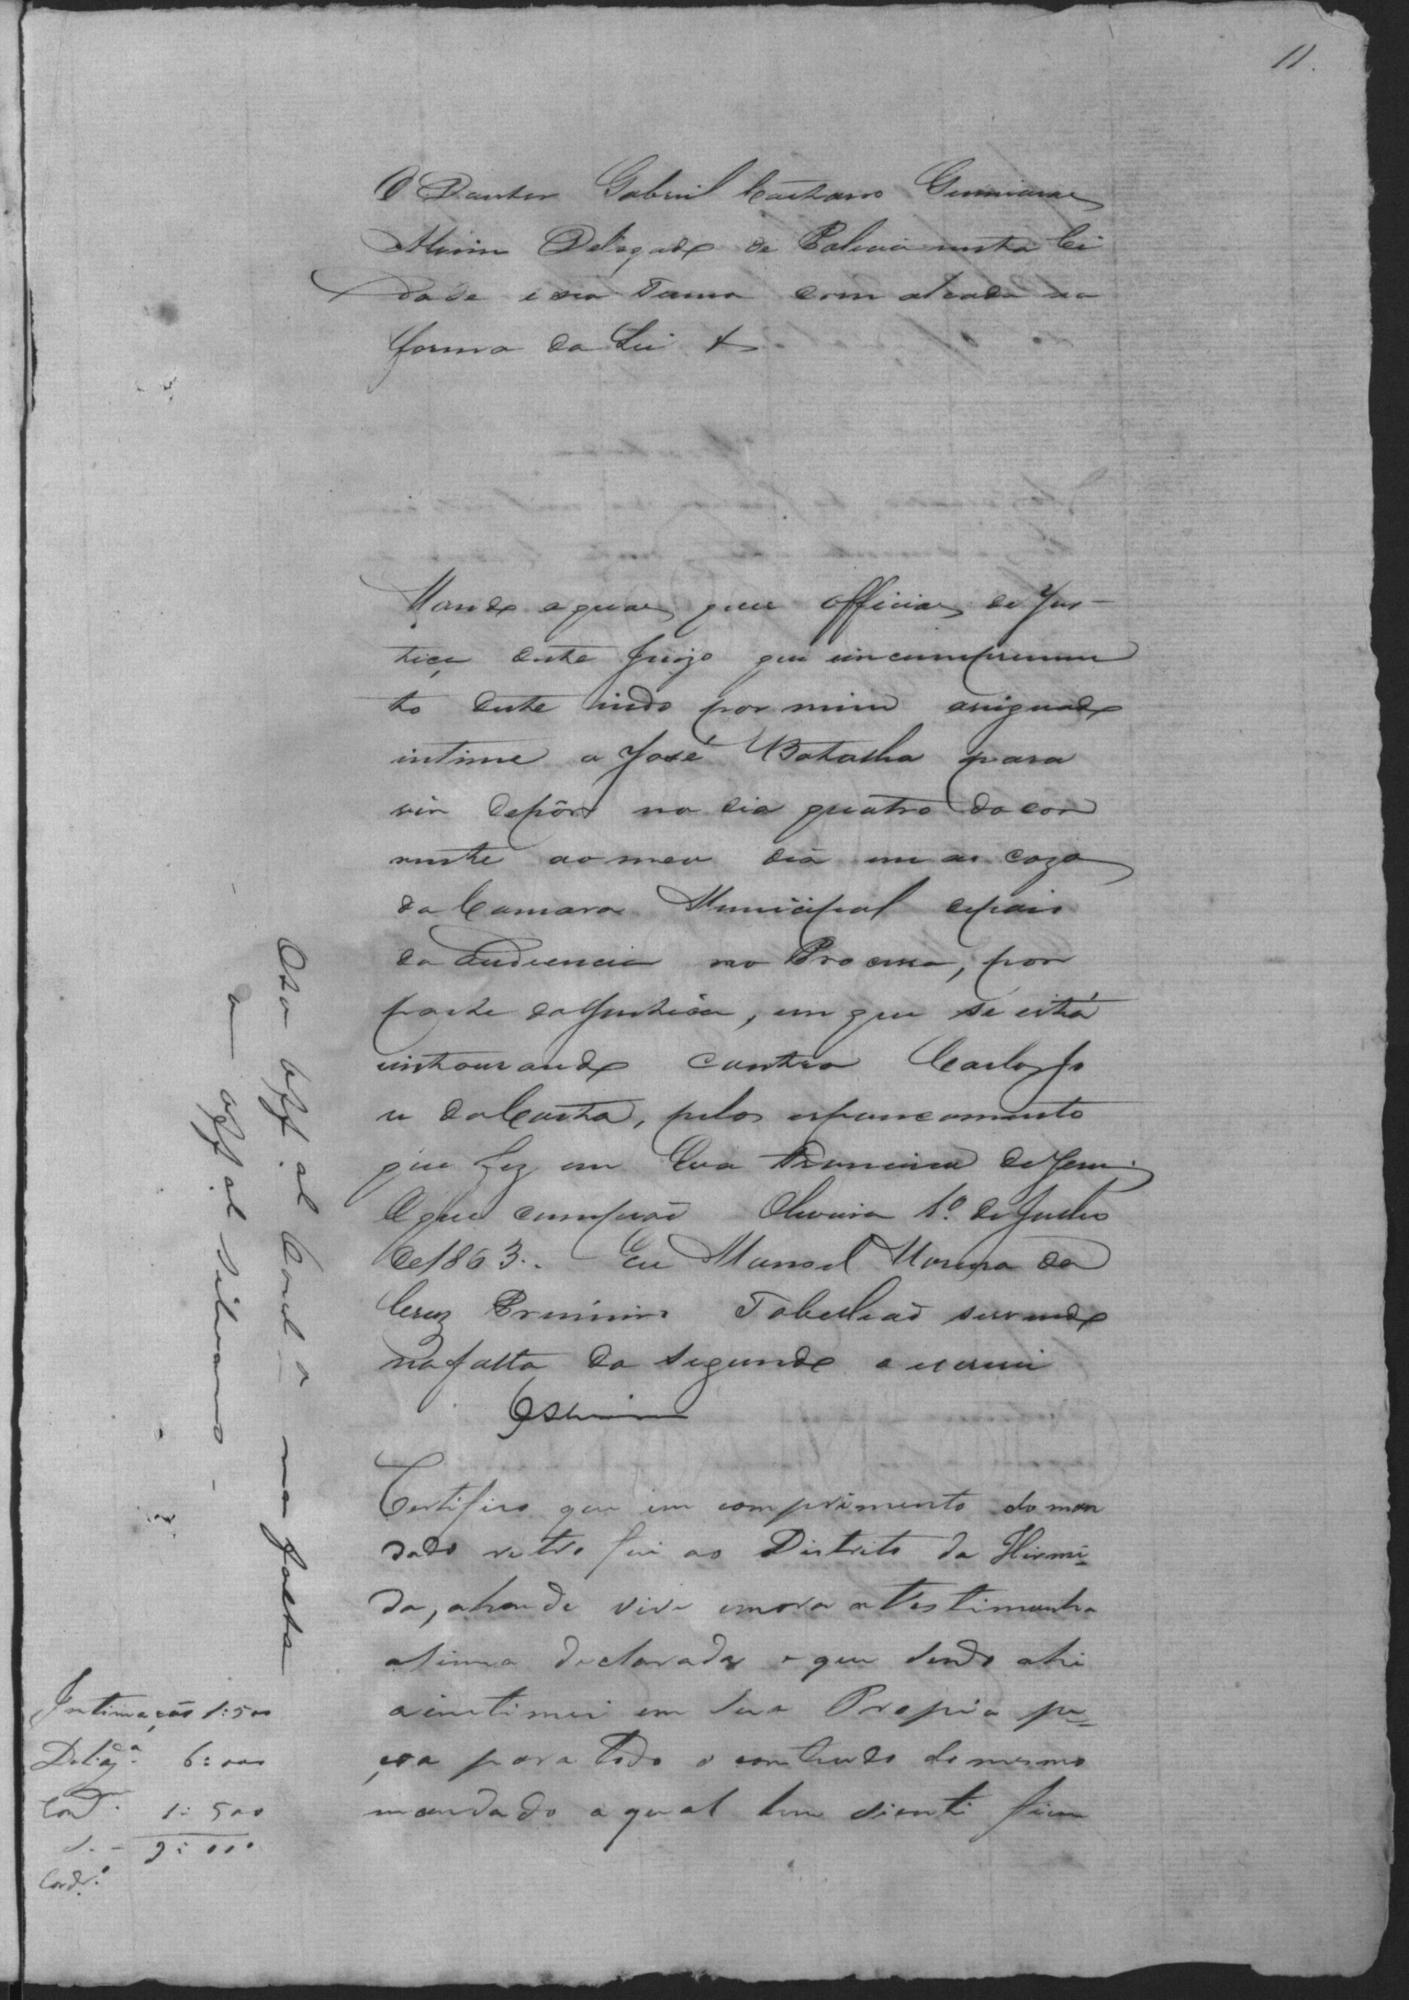 11.
O Doutor Gabriel Caetano Guimarães
Alvim Delegado de Policia nesta Ci
dade e seu Termo com alçada na
forma da Lei &
Mando a quaesquer officiaes de Jus-
tiça deste Juizo que em cumprimen
to deste indo por mim assignado
intime a José Batalha para
vir depôr no dia quatro do cor
rente ao meu dia em as cazas
da Camara Municipal depois
da Audiencia no Processo, por
parte da Justiça, em que se está
instaurando contra Carlos Jo
se da Costa, pelos espancamento
que fez em Eva Francisca de Jesus.
O que cumprão Oliveira 1º de Julho
de 1863. Eu Manoel Moreira da
Cruz Primeiro Tabelliaõ servindo
na falta do segundo o escrevi
GAlvim
Certifico que em comprimento do man
dado retro fui ao Distrito da Hirmi=
da, ahonde vive emora a Testimunha
asima declarada e que sendo ahi
a intimei em sua Propia pe=
çoa para todo o contheudo do mesmo
mandado a qual bem sienti ficou
Intimação 1:500
Delig.ª 6:000
Cond. 1:500
9:000
Cord.º
Ao Off.al Cord.º na falta
- o off.al Silvano -